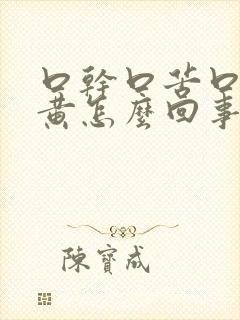 口幹口苦口
黃怎麼回事
陳寶成